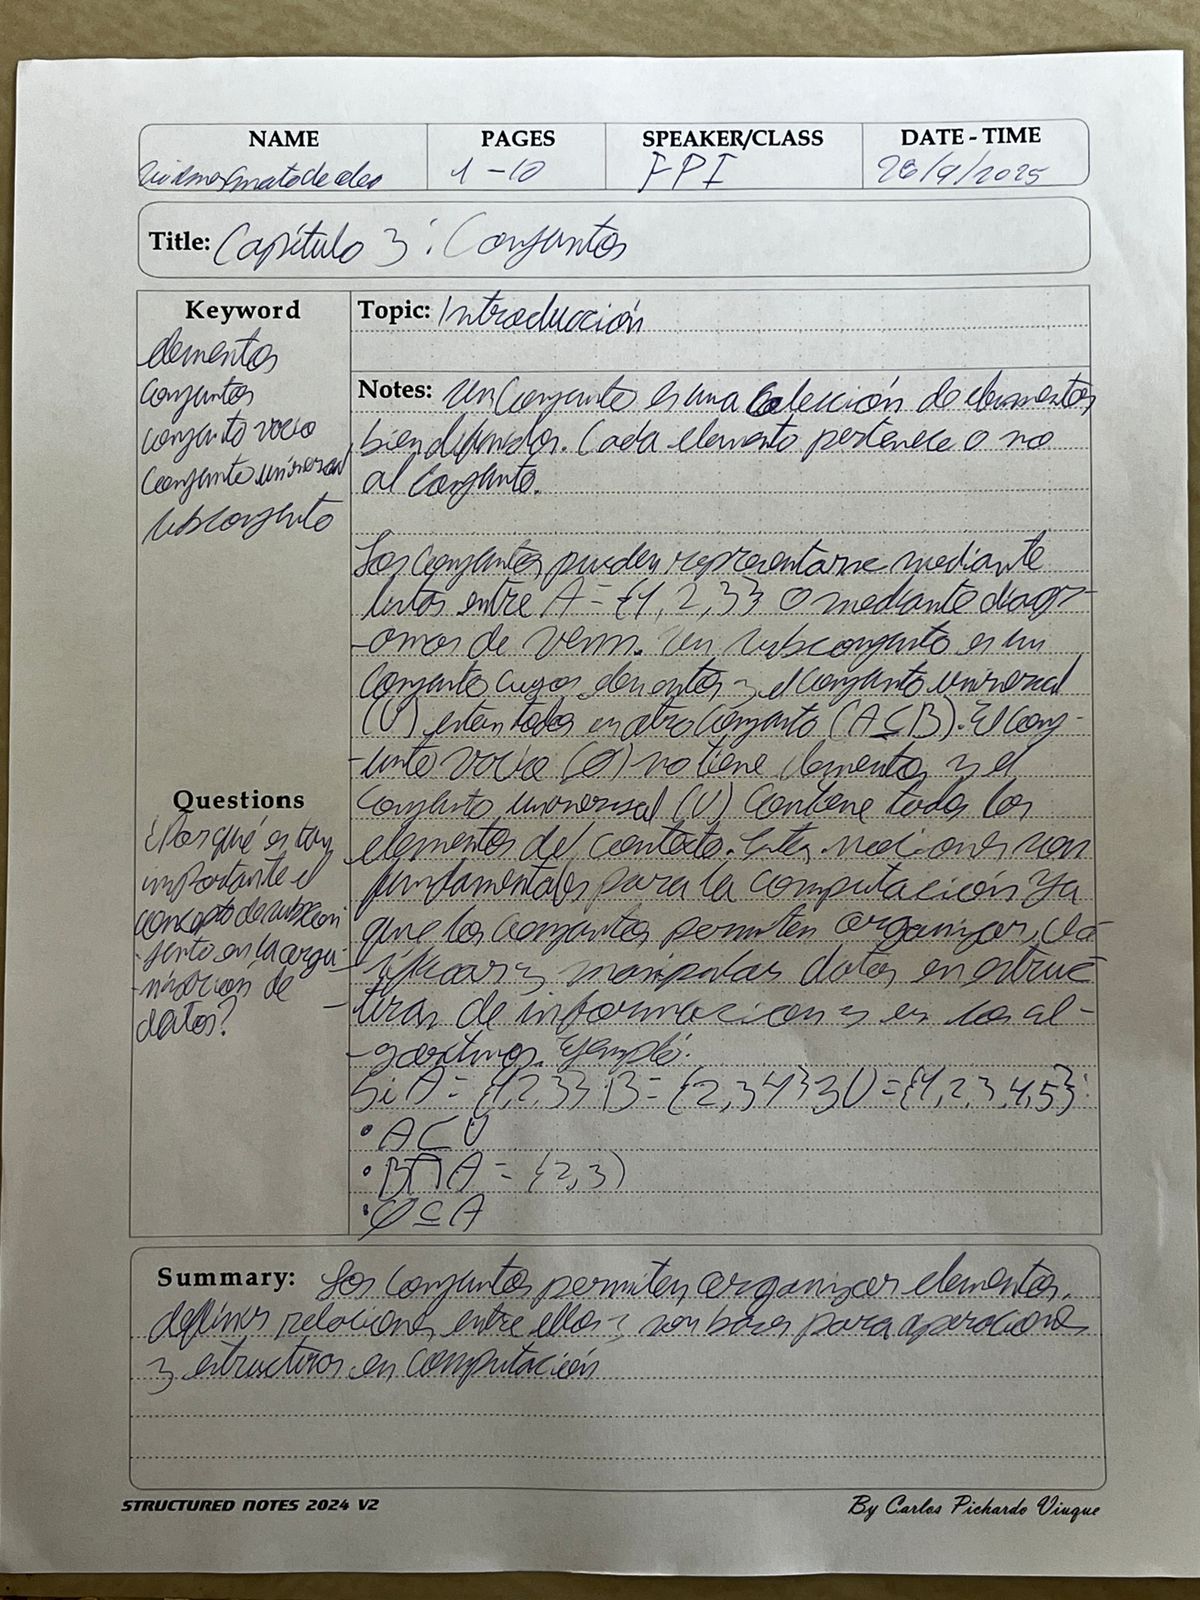 NAME PAGES SPEAKER/CLASS DATE - TIME
1 - 10 FPI 28/9/2025
Title: Capítulo 3: Conjuntos
Keyword
elementos
conjuntos
conjunto vacio
conjunto universal
subconjunto
Questions
¿Por qué es tan
importante el
concepto de subcon
-junto en la orga
-nización de
datos?
Topic: Introducción
Notes: Un Conjunto es una Colección de elementos
bien definidos. Cada elemento pertenece o no
al Conjunto.
Los Conjuntos pueden representarse mediante
listas entre A = {1, 2, 3} o mediante diagr-
-amas de venn. Un subconjunto es un
Conjunto cuyos elementos y el conjunto universal
(U) estan todos en otro conjunto (A⊆B). El conj-
-unto vacio (∅) no tiene elementos y el
Conjunto universal (U) contiene todos los
elementos del contexto. Estas nociones son
fundamentales para la computación ya
que los conjuntos permiten organizar, cla-
-sificar y manipular datos en estruc
-turas de informacion y en los al-
-goritmos. Ejemplo:
Si A = {1,2,3} B = {2,3 4} y U = {1,2,3,4,5}:
• A ⊂ U
• B ∩ A = {2,3)
• ∅ ⊆ A
Summary: Los conjuntos permiten organizar elementos,
definir relaciones entre ellos y son bases para operaciones
y estructuras en computación
STRUCTURED NOTES 2024 V2
By Carlos Pichardo Viuque